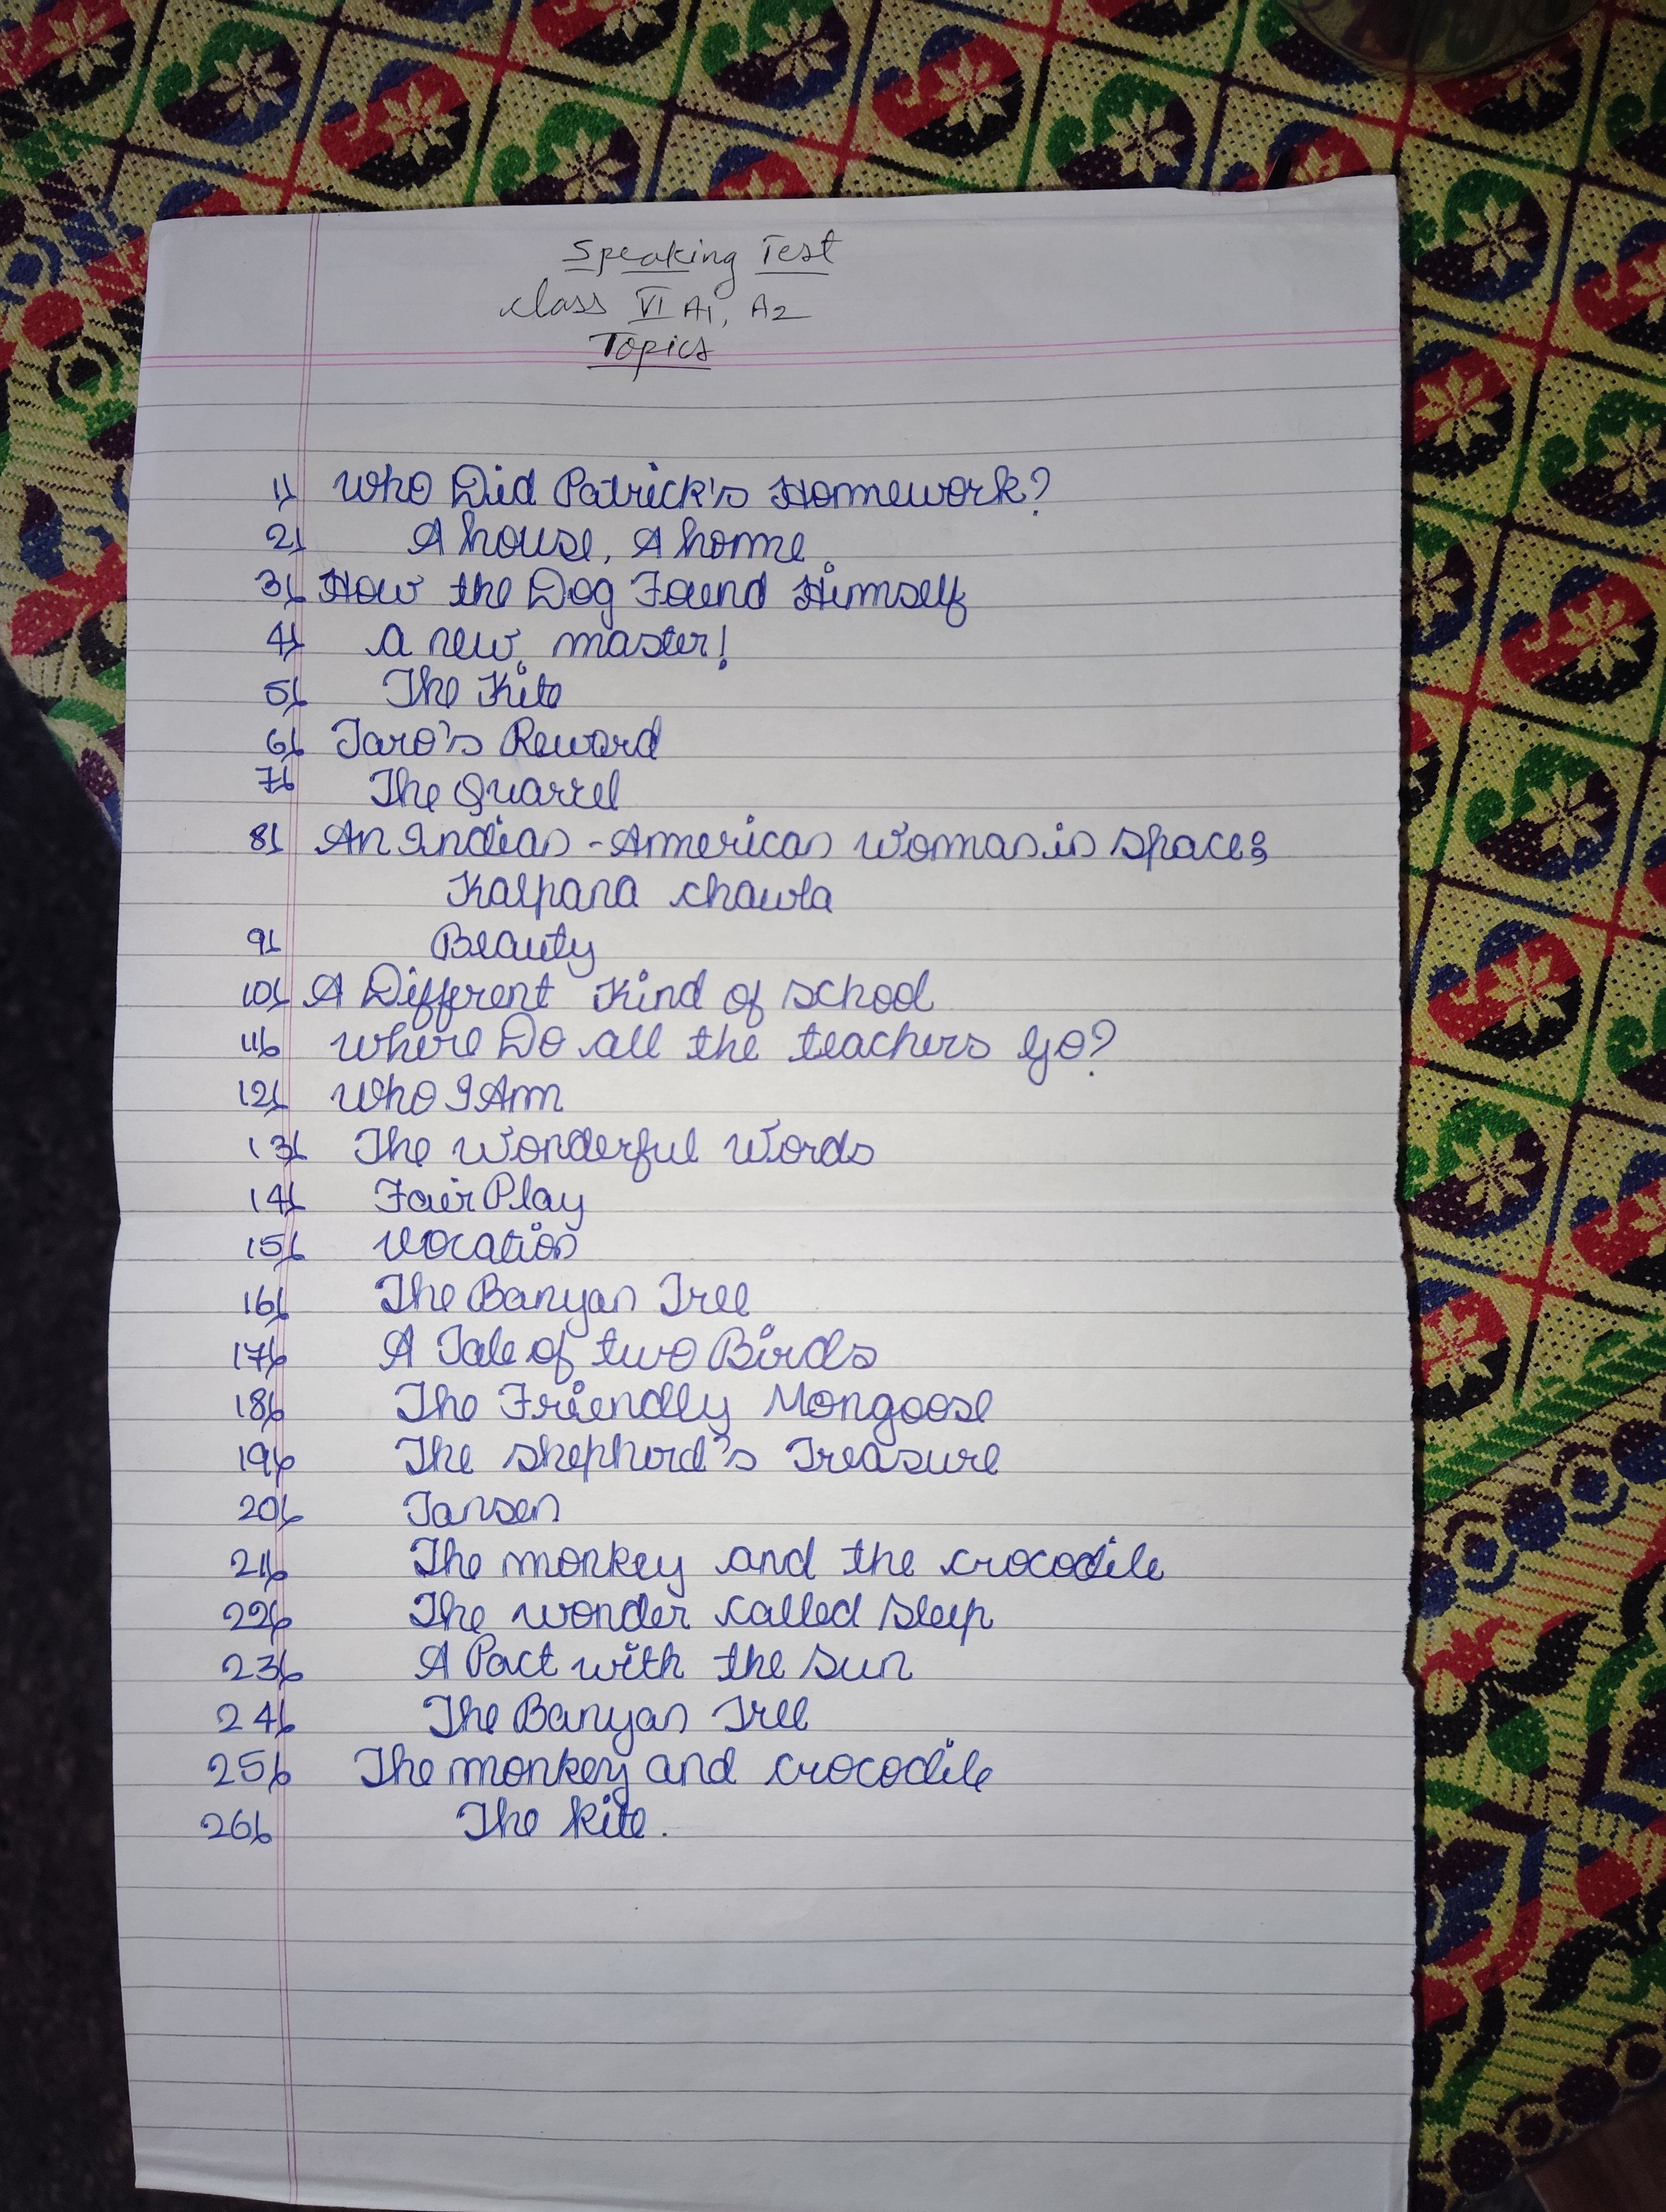 Speaking Test
Class VI A1, A2
Topics
1) Who Did Patrick's Homework?
2) A house, A home
3) How the Dog Found Himself
4) a new master!
5) The Kite
6) Taro's Reward
7) The Quarrel
8) An Indian - American Woman in space:
Kalpana chawla
9) Beauty
10) A Different Kind of school
11) Where Do all the teachers Go?
12) Who I Am
13) The Wonderful Words
14) Fair Play
15) Vocation
16) The Banyan Tree
17) A Tale of two Birds
18) The Friendly Mongoose
19) The shepherd's Treasure
20) Tansen
21) The monkey and the crocodile
22) The wonder called sleep
23) A Pact with the sun
24) The Banyan Tree
25) The monkey and crocodile
26) The kite.